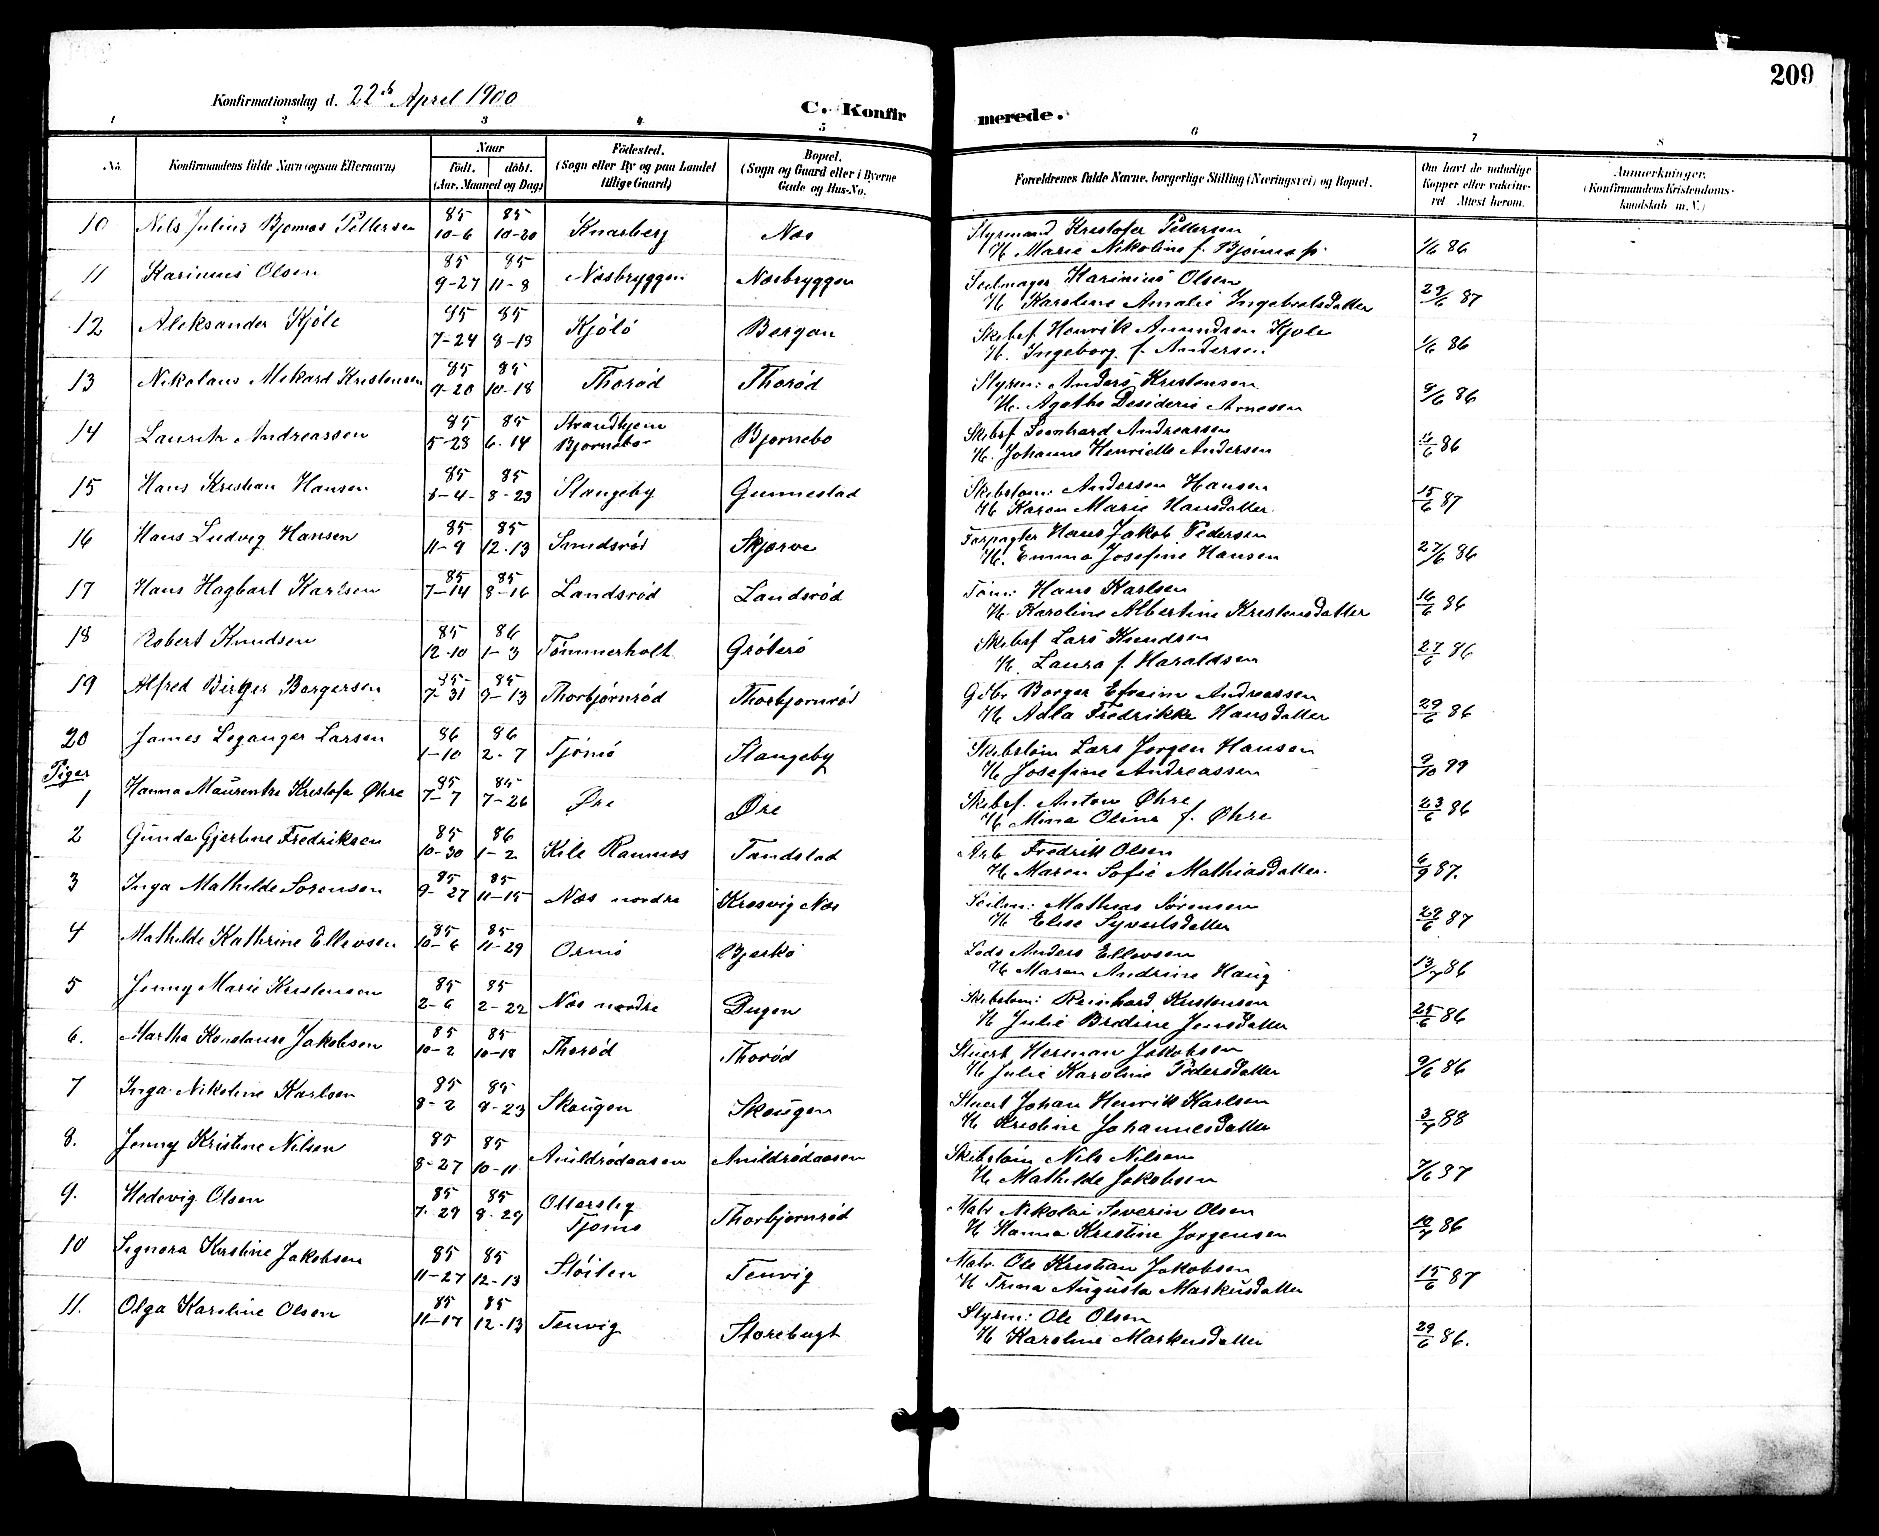 209
Konfirmationsdag d. 22de April 1900
C. Konfirmerede.
1 2 3 4 5 6 7 8
No. Konfirmandens fulde Navn (ogsaa Efternavn) Naar født. døbt. (Aar, Maaned og Dag) Fødested. (Sogn eller By og paa Landet tillige Gaard) Bopæl. (Sogn og Gaard eller i Byerne Gade og Hus-No. Forældrenes fulde Navne, borgerlige Stilling (Næringsvei) og Bopæl. Om havt de naturlige Kopper eller vakcineret Attest herom. Anmerkninger. (Konfirmandens Kristendomskundskab m. V.)
10 Nils Julius Bjønnes Pettersen 85 10-6 85 10-20 Knarberg Nes Styrmand Kristofer Pettersen
H. Marie Nikoline f. 1/6 86
11 Karinius Olsen 85 9-27 85 11-8 Nesbryggen Nesbryggen Seilmager Karinius Olsen
H. Karoline Amalie Ingebretsdatter 29/6 87
12 Aleksander Kjöle 85 7-24 85 8-13 Kjölö Bergan Skibsf Henrik Amundsen Kjøle
H. Ingeborg f. Andersen 1/6 86
13 Nikolaus Mekard Kristensen 85 9-20 85 10-18 Thorød Thorød Styrm: Anders Kristensen
H. Agathe Desideria Arnesen 9/6 86
14 Lauritz Andreassen 85 5-28 85 6-14 Strandhjem Bjørnebo Bjørnebo Skibsf Leonhard Andreassen
H. Johanne Henriette Andersen 4/6 86
15 Hans Kristian Hansen 85 8-4 85 8-23 Stangeby Gunnestad Skibstøm: Andersen Hansen
H. Karen Marie Hansdatter 15/6 87
16 Hans Ludvig Hansen 85 11-9 85 12-13 Sundsrød Skjerve Forpagter Hans Jakob Pedersen
H. Emma Josefine Hansen 27/6 86
17 Hans Hagbart Karlsen 85 7-14 85 8-16 Landsrød Landsrød Tøm: Hans Karlsen
H. Karoline Albertine Kristensdatter 16/6 86
18 Robert Knudsen 85 12-10 86 1-3 Tømmerholt Gröterö Skibsf Lars Knudsen
H. Laura f. Haraldsen 27/6 86
19 Alfred Birger Borgersen 85 7-31 85 9-13 Thorbjørnrød Thorbjørnrød Gdbr Borger Efraim Andreassen
H. Adla Fredrikke Hansdatter 29/6 86
20 James Leganger Larsen 86 1-10 86 2-7 Tjømø Stangeby Skibstøm Lars Jørgen Hansen
H. Josefine Andreassen 9/10 99
Piger
1 Hanna Maurentse Kristofa Øhre 85 7-7 85 7-26 Øre Øre Skibsf. Anton Øhre
H. Mina Oline f. Øhre 23/6 86
2 Gunda Gjertine Fredriksen 85 10-30 86 1-2 Kile Ramnes Tandstad Arb Fredrik Olsen
H. Maren Sofie Mathiasdatter. 6/9 87.
3 Inga Mathilde Sørensen 85 9-27 85 11-15 Nes nordre Krosvig Nes Seilm: Mathias Sørensen
H. Elise Syvertsdatter 29/6 87
4 Mathilde Kathrine Ellevsen 85 10-6 85 11-29 Ormö Bjerkö Lods Anders Ellevsen
H. Maren Andrine Haug 13/7 86
5 Jenny Marie Kristensen 85 2-6 85 2-22 Nes nordre Dugen Skibstøm: Reinhard Kristensen
H. Julie Bredine Jensdatter 25/6 86
6. Martha Konstanse Jakobsen 85 10-2 85 10-18 Thorød Thorød Stuert Herman Jakobsen
H. Julie Karoline Pedersdatter 9/6 86
7 Inga Nikoline Karlsen 85 8-2 85 8-23 Skaugen Skaugen Stuert Johan Henrik Karlsen
H. Kristine Johannesdatter 3/7 88
8. Jenny Kristine Nilsen 85 8-27 85 10-11 Auildrødaasen Auildrødaasen Skibstøm Nils Nilsen
H. Mathilde Jakobsen 7/6 87
9. Hedevig Olsen 85 7-29 85 8-29 Ottersteg Tjømø Thorbjørnrød Matr Nikolai Severin Olsen
H. Hanna Kristine Jørgensen 10/7 86
10 Signora Kirstine Jakobsen 85 11-27 85 12-13 Støiten Tenvig Matr. Ole Kristian Jakobsen
H. Trina Augusta Markusdatter 15/6 87
11. Olga Karoline Olsen 85 11-17 85 12-13 Tenvig Storebugt Styrm: Ole Olsen
H. Karoline Markusdatter 29/6 86.